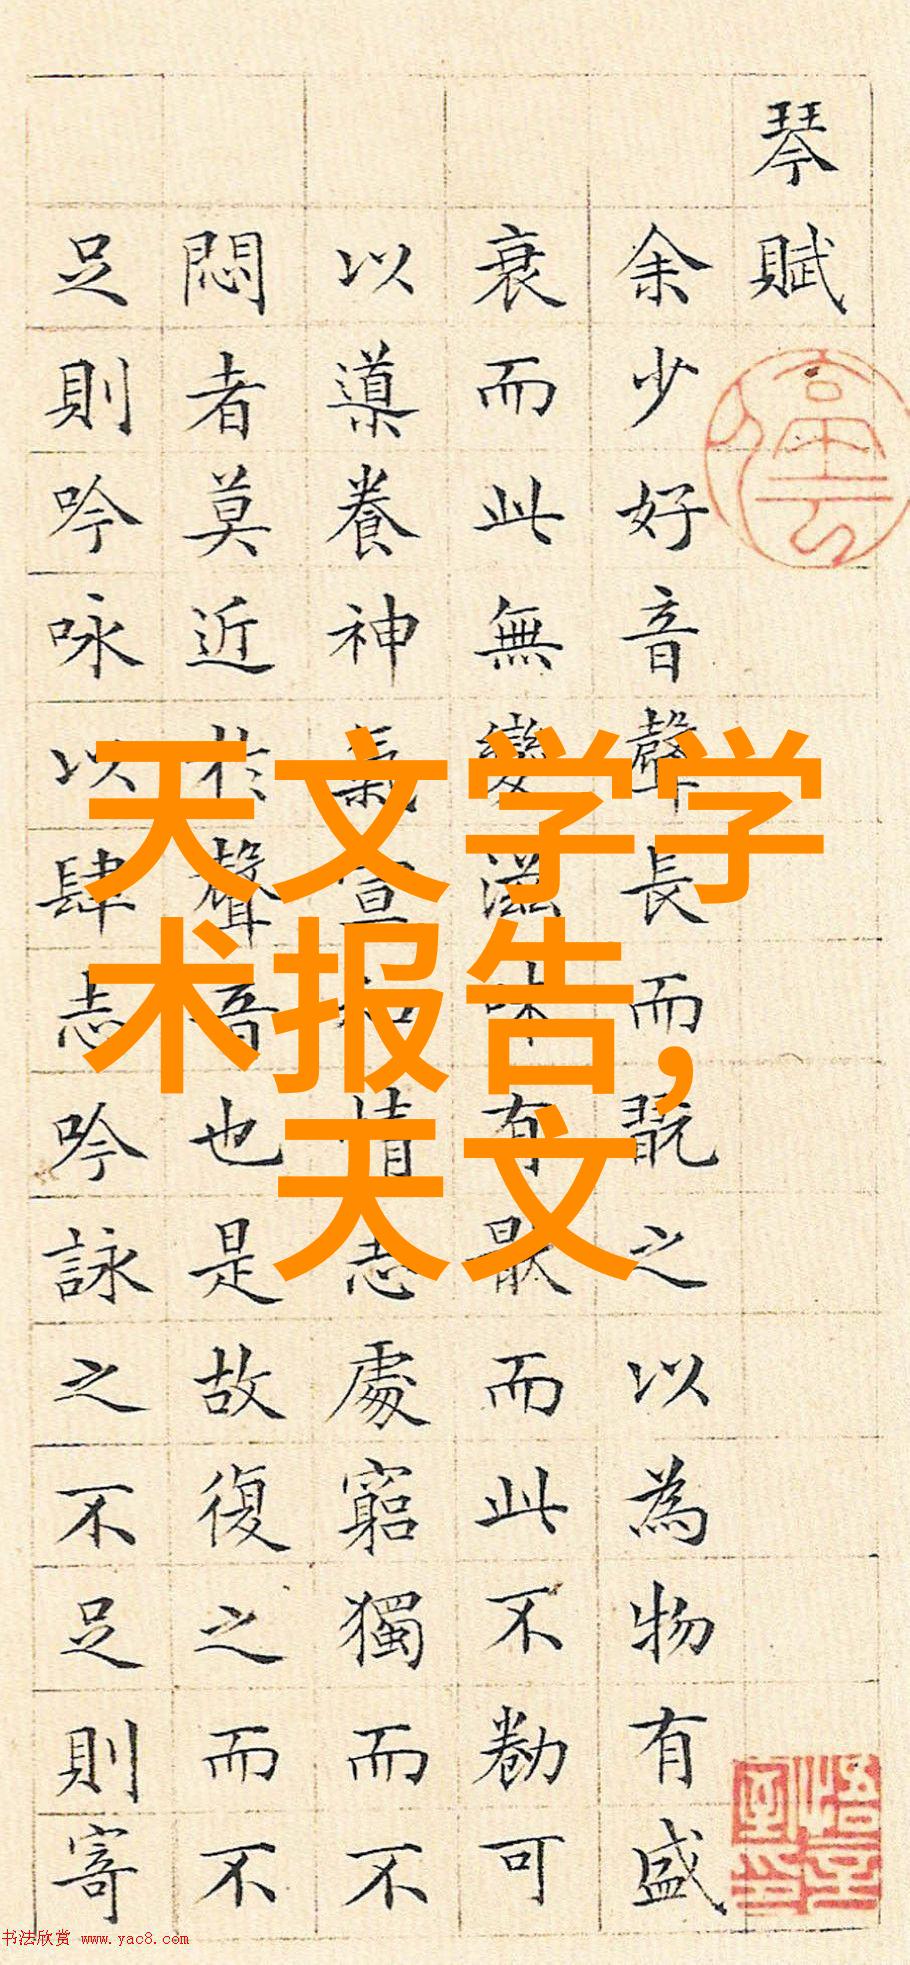 琴賦
余少好音聲長而翫之以為物有盛
衰而此無變滋味有猒而此不勌可
以導養神氣宣和情志處窮獨而不
悶者莫近於聲音也是故復之而不
足則吟咏以肆志吟詠之不足則寄
天文学学
术报告,
天文
书法欣赏 www.yac8.com